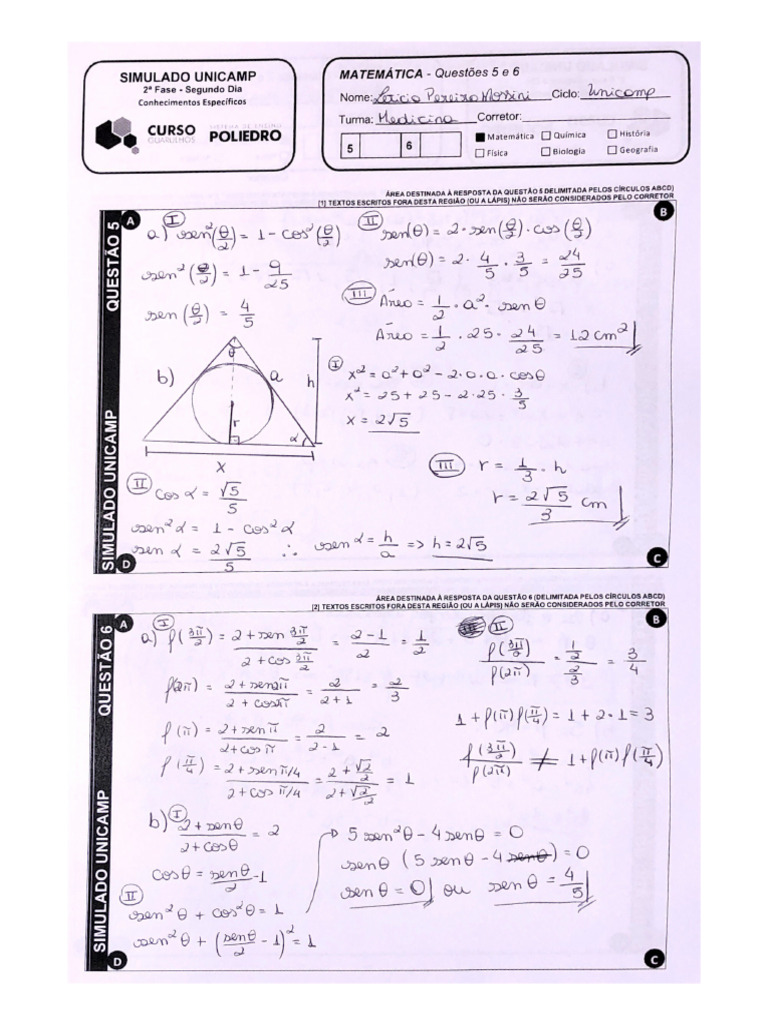 SIMULADO UNICAMP
2ª Fase - Segundo Dia
Conhecimentos Específicos
CURSO
GUARULHOS
SISTEMA DE ENSINO
POLIEDRO
MATEMÁTICA - Questões 5 e 6
Nome: Leticia Pereira Mossini Ciclo: Unicamp
Turma: Medicina Corretor:
5 6
Matemática Química História
Física Biologia Geografia
ÁREA DESTINADA À RESPOSTA DA QUESTÃO 5 DELIMITADA PELOS CÍRCULOS ABCD)
[1] TEXTOS ESCRITOS FORA DESTA REGIÃO (OU A LÁPIS) NÃO SERÃO CONSIDERADOS PELO CORRETOR
A
B
QUESTÃO 5
SIMULADO UNICAMP
I
a) sen²(θ/2) = 1 - cos²(θ/2)
sen²(θ/2) = 1 - 9/25
sen(θ/2) = 4/5
II
sen(θ) = 2 · sen(θ/2) · cos(θ/2)
sen(θ) = 2 · 4/5 · 3/5 = 24/25
III
Área = 1/2 · a² · senθ
Área = 1/2 · 25 · 24/25 = 12 cm²
b)
θ
a
h
r
α
x
I
x² = a² + a² - 2·a·a·cosθ
x² = 25 + 25 - 2·25·3/5
x = 2√5
II
cos α = √5/5
sen²α = 1 - cos²α
sen α = 2√5/5 ∴ sen α = h/a => h = 2√5
III
r = 1/3 · h
r = 2√5/3 cm
D
C
ÁREA DESTINADA À RESPOSTA DA QUESTÃO 6 (DELIMITADA PELOS CÍRCULOS ABCD)
[2] TEXTOS ESCRITOS FORA DESTA REGIÃO (OU A LÁPIS) NÃO SERÃO CONSIDERADOS PELO CORRETOR
A
B
QUESTÃO 6
SIMULADO UNICAMP
I
a) f(3π/2) = (2 + sen 3π/2)/(2 + cos 3π/2) = (2-1)/2 = 1/2
f(2π) = (2 + sen2π)/(2 + cos2π) = 2/(2+1) = 2/3
f(π) = (2 + senπ)/(2 + cosπ) = 2/(2-1) = 2
f(π/4) = (2 + senπ/4)/(2 + cosπ/4) = (2 + √2/2)/(2 + √2/2) = 1
II
f(3π/2)/f(2π) = (1/2)/(2/3) = 3/4
1 + f(π)f(π/4) = 1 + 2·1 = 3
f(3π/2)/f(2π) ≠ 1 + f(π)f(π/4)
b) I
(2 + senθ)/(2 + cosθ) = 2
cosθ = senθ/2 - 1
II
sen²θ + cos²θ = 1
sen²θ + (senθ/2 - 1)² = 1
5sen²θ - 4senθ = 0
senθ (5senθ - 4 senθ) = 0
senθ = 0 ou senθ = 4/5
D
C